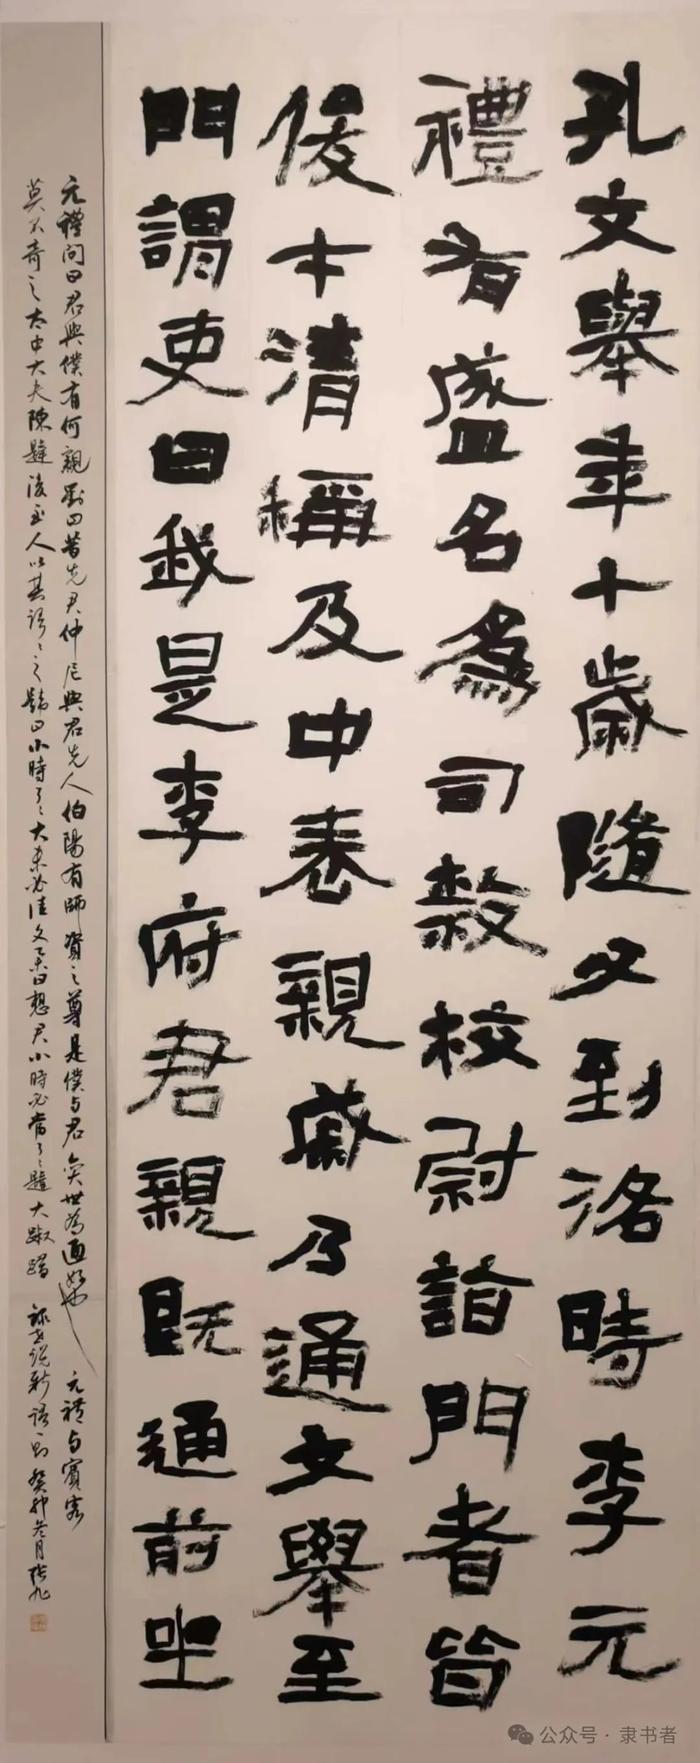 孔文舉年十歲隨父到洛時李元
禮有盛名為司隸校尉詣門者皆
俊才清稱及中表親戚乃通文舉至
門謂吏曰我是李府君親既通前坐
元禮問曰君與僕有何親對曰昔先君仲尼與君先人伯陽有師資之尊是僕與君奕世為通好也 元禮与賓客
莫不奇之太中大夫陳韙後至人以其語語之韙曰小時了了大未必佳文舉曰想君小時必當了了韙大踧踖 世說新語一則 癸卯冬月
公众号·隶书者